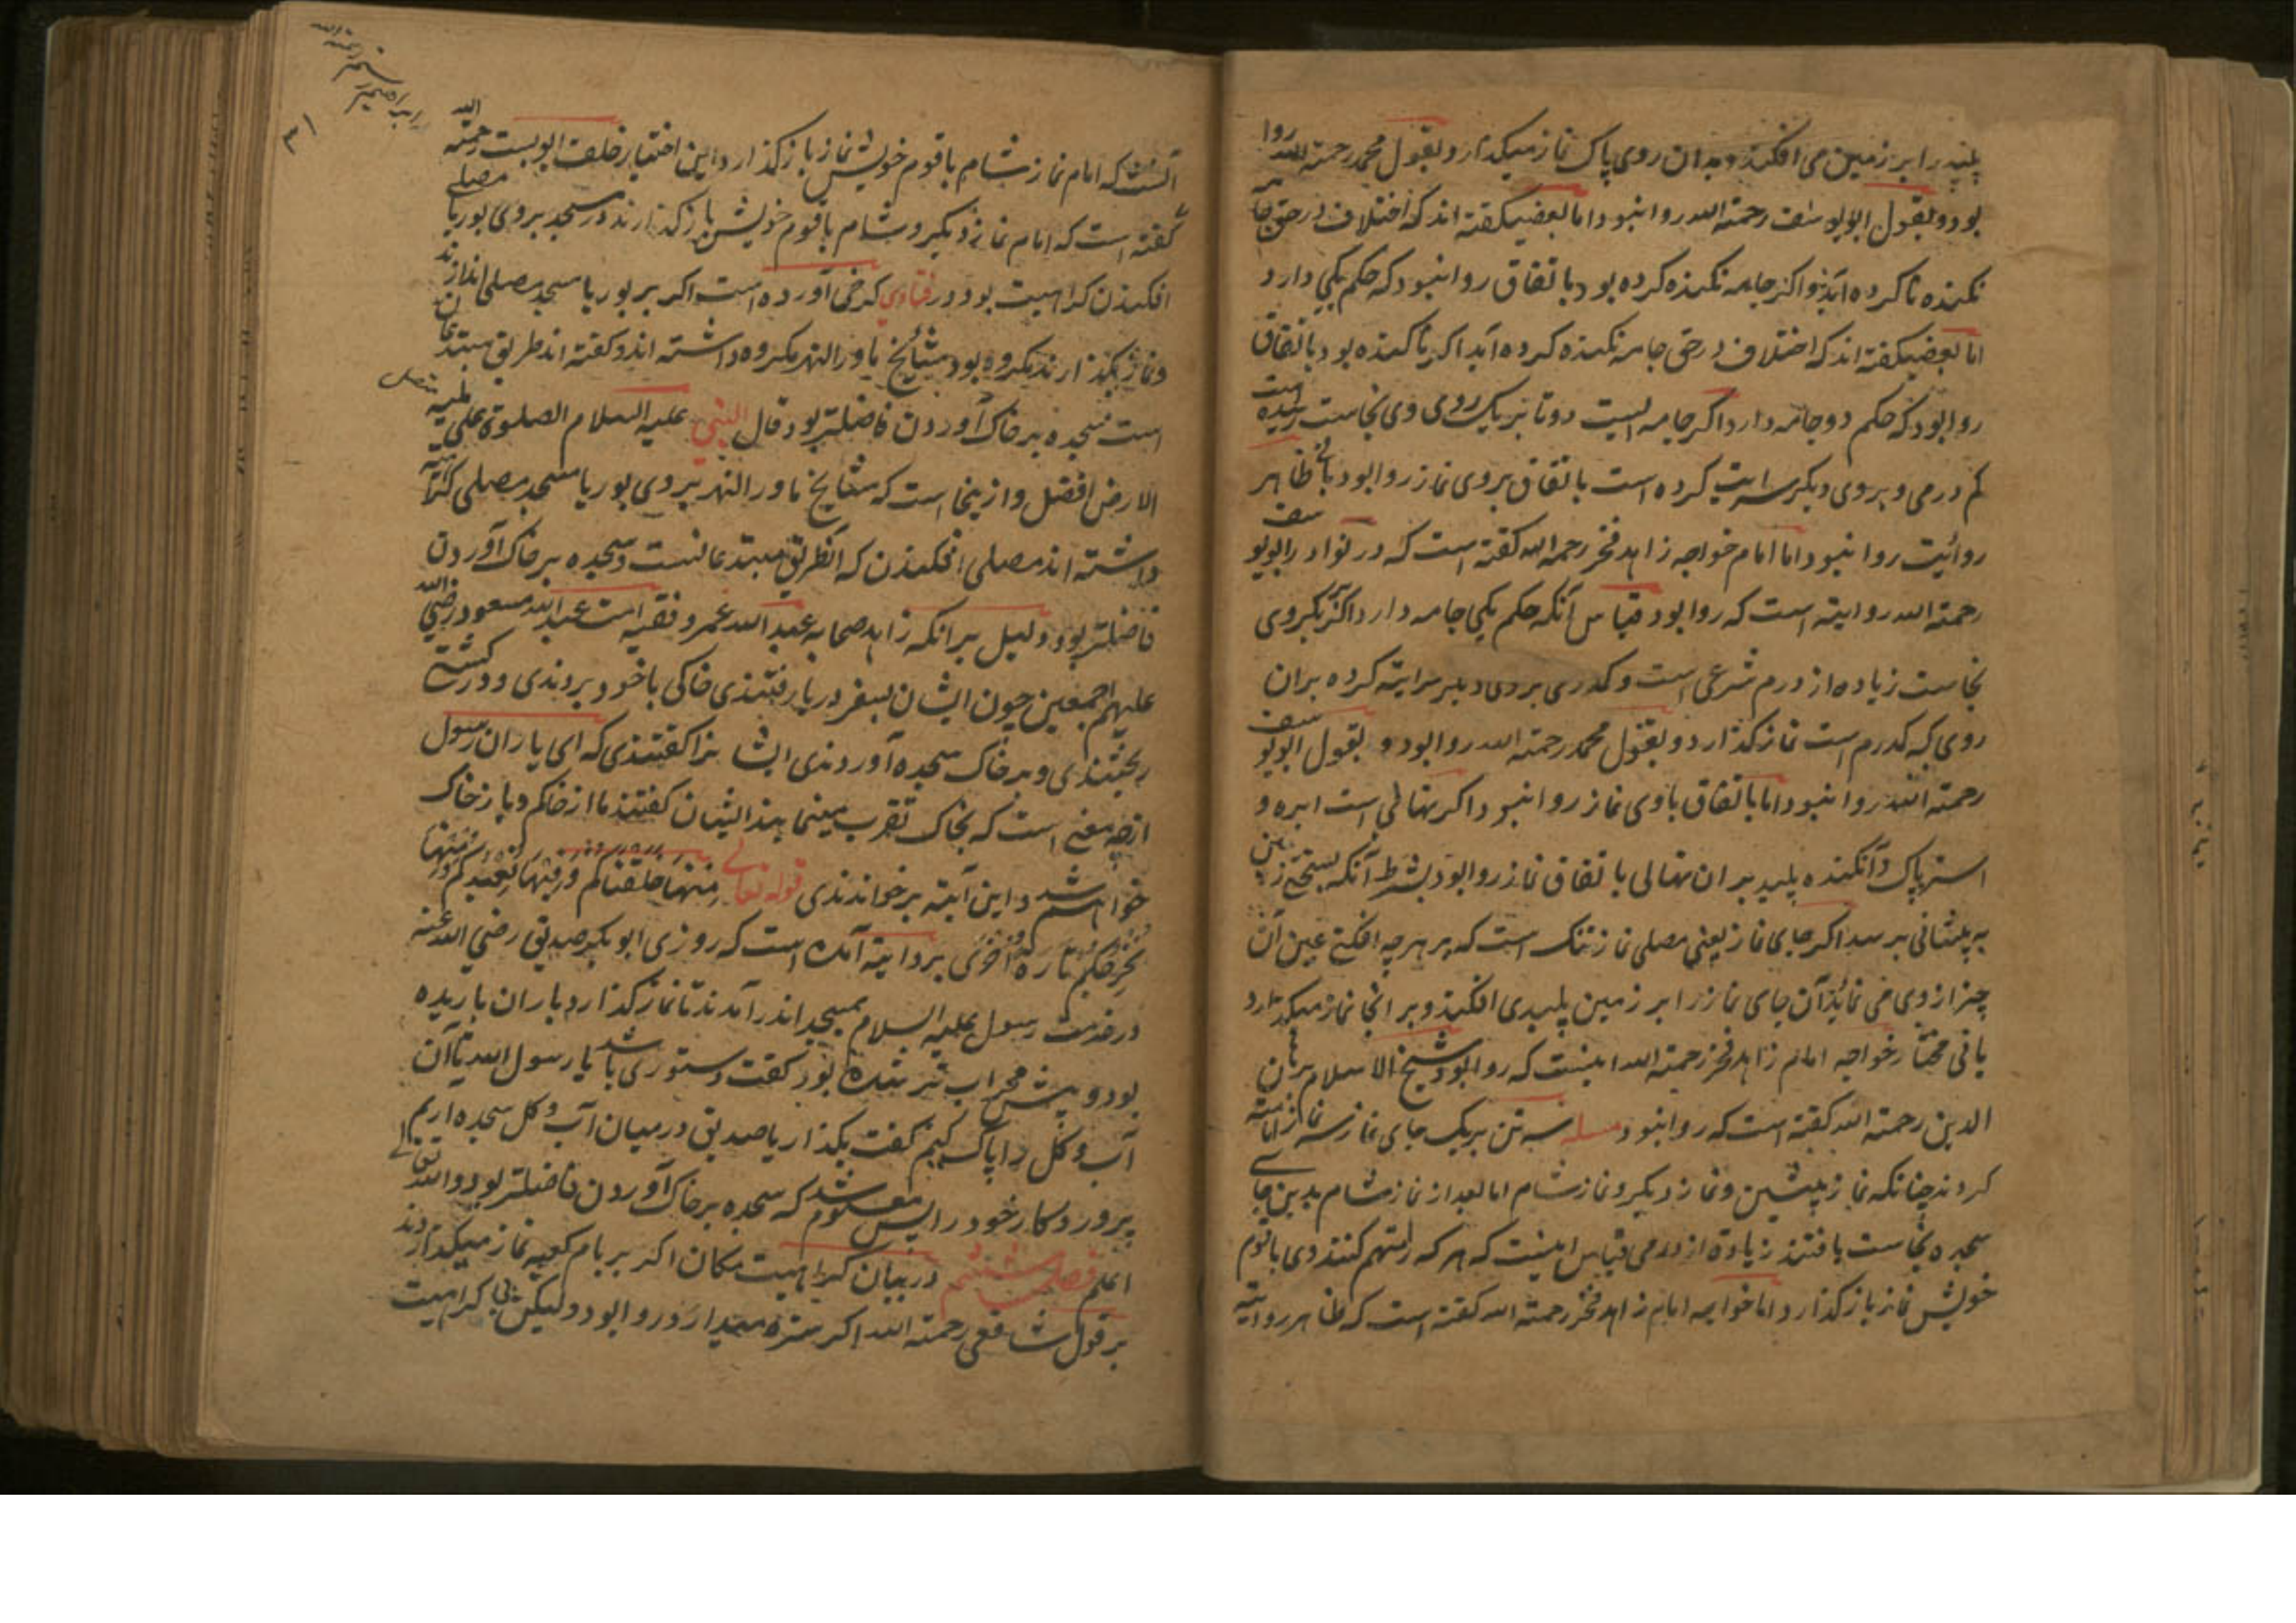 پلید را بر زمین می افکند و بدان روی پاک نماز میکذارد و بقول محمد رحمته الله روا
بود و بقول ابو یوسف رحمته الله روا نبود اما بعضی کفته اند که اختلاف در حق جامه
نکنده ناکرده آید و اکر جامه نکنده کرده بود باتفاق روا نبود که حکم یکی دارد
اما بعضی کفته اند که اختلاف در حق جامه نکنده کرده آید اکر ناکنده بود باتفاق
روا بود که حکم دو جامه دارد اکر جامه ایست دوتا بر یک روی وی نجاست رسیده است
کم درمی و بروی دیکر سرایت کرده است باتفاق بروی نماز روا بود ظاهر
روائیت روا نبود اما امام خواجه زاهد فخر رحمه الله کفته است که در نوادر ابو یوسف
رحمته الله روایته است که روا بود قیاس آنکه حکم یکی جامه دارد اکر بر یکروی
نجاست زیاده از درم شرعی است و کدری بروی دیکر سرایته کرده بران
روی که کدرم است نماز کذارد و بقول محمد رحمته الله روا بود و بقول ابو یوسف
رحمته الله روا نبود اما باتفاق باوی نماز روا نبود و اکر نهالی است ابره و
استر پاک و آنکنده پلید بران نهالی باتفاق نماز روا بود بشرط آنکه زمین
به پیشانی برسد اکر جای نماز یعنی مصلی نماز تنک است که بر هرچه افکنی عین آن
چیز از وی می نماید آن جای نماز را بر زمین پلیدی افکند و بر انجا نماز میکذارد
یانی مختار خواجه امام زاهد فخر رحمته الله اینست که روا بود شیخ الاسلام برهان
الدین رحمته الله کفته است که روا نبود مسله سه تن بر یک جای نماز سه نماز امامته
کردند چنانکه نماز پیشین و نماز دیکر و نماز شام اما بعد از نماز شام بدین جای
سجده نجاست یافتند زیاده از درمی قیاس اینست که هر که را متهم کنند وی با قوم
خویش نماز باز کذارد اما خواجه امام زاهد فخر رحمته الله کفته است که ظاهر روایته
آنست که امام نماز شام با قوم خویش نماز باز کذارد و این اختیار خلف ایوبست رحمته الله
کفته است که امام نماز دیکر و شام با قوم خویش باز کذارند در مسجد بروی بوریا مصلی
افکندن کراهیت بود و در فتاوی کرخی آورده است اکر بر بوریا مسجد مصلی اندازند
و نماز بکذارند مکروه بود مشائخ ماورالنهر مکروه داشته اند و کفته اند طریق مبتدعان
است سجده بر خاک آوردن فاضلتر بود قال النبی علیه السلام الصلوة علی
الارض افضل و از ینجا است که مشایخ ماورالنهر بروی بوریا مسجد مصلی
داشته اند مصلی افکندن که آن طریق مبتدعانست و سجده بر خاک آوردن
فاضلتر بود و دلیل برانکه زاهد صحابه عبد الله عمر و فقیه امت عبد الله مسعود رضی الله
علیهم اجمعین چون ایشان بسفر دریا رفتندی خاکی با خود بردندی و در کشتی
ریختندی و بر خاک سجده آوردندی ایشانرا کفتندی که ای یاران رسول
ازچه معنی است که بخاک تقرب مینمایند ایشان کفتند ما از خاکم و باز خاک
خواهیم شد و این آیته برخواندندی قوله تعالی منها خلقناکم و فیها نعیدکم و منها
نخرجکم تارة اخری بروایته آمده است که روزی ابو بکر صدیق رضی الله عنه
در خدمت رسول علیه السلام بمسجد اندر آمدند تا نماز کذارد باران باریده
بود و پیش محراب تر شده بود کفت دستوری باشد یا رسول الله تا آن
آب و کل را پاک کنیم کفت بکذار یا صدیق در میان آب و کل سجده اریم
پروردکار خود را پس معلوم شد که سجده بر خاک آوردن فاضلتر بود والله تعالی
اعلم فصل ششم در بیان کراهیت مکان اکر بر بام کعبه نماز میکذارد
بر قول شافعی رحمته الله اکر ستره میدارد روا بود و لیکن کراهیت